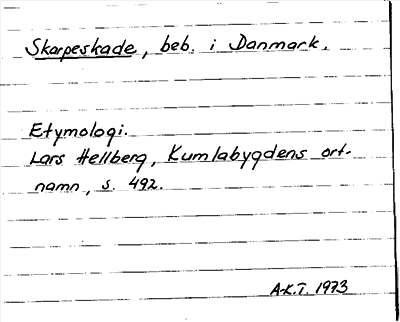 Skarpeskade, beb. i Danmark.
Etymologi.
Lars Hellberg, Kumlabygdens ort-
namn, s. 492.
A-K.T. 1973